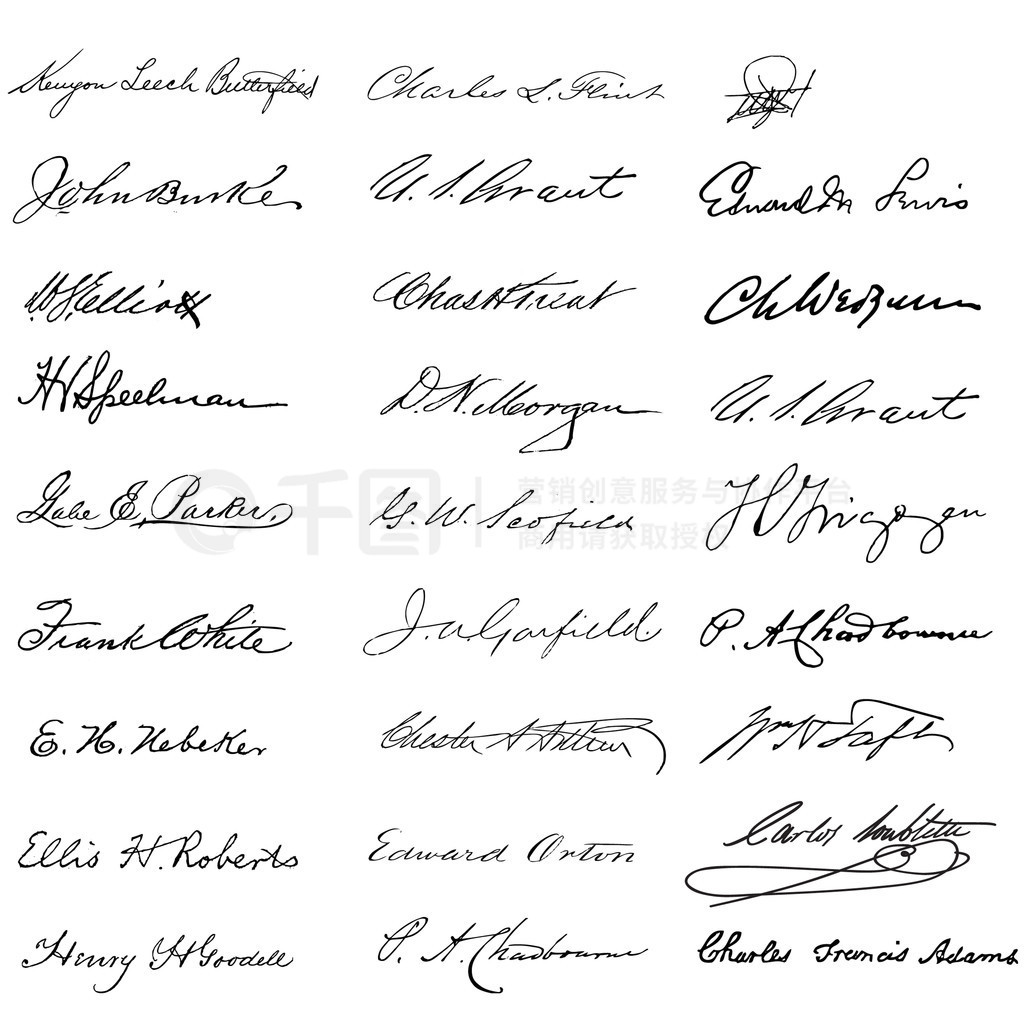 Kenyon Leech Butterfield Charles L. Flint
John Burke U. S. Grant Edward M Lewis
W.S. Elliott Chas H Treat Ch Wedzum
HV Speelman D. N. Morgan U. S. Grant
千图 营销创意服务与协作平台
商用请获取授权
Gabe E. Parker. G. W. Scofield
Frank White J. A. Garfield. P. A. Chadbourne
E. H. Nebeker Chester A Arthur Wm H Taft
Ellis H. Roberts Edward Orton Carlos Soublette
Henry H Goodell P. A. Chadbourne Charles Francis Adams